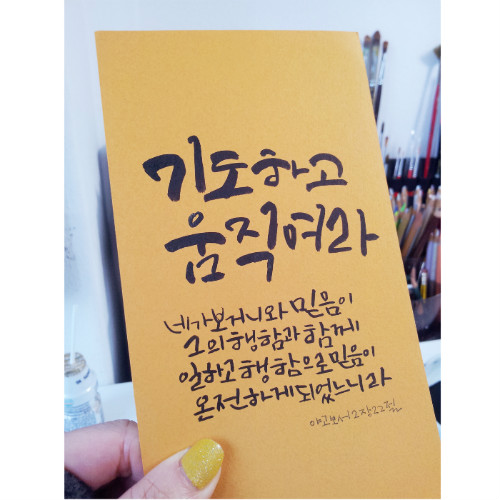 기도하고
움직여라
네가보거니와 믿음이
그의행함과 함께
일하고 행함으로믿음이
온전하게되었느니라
야고보서2장22절